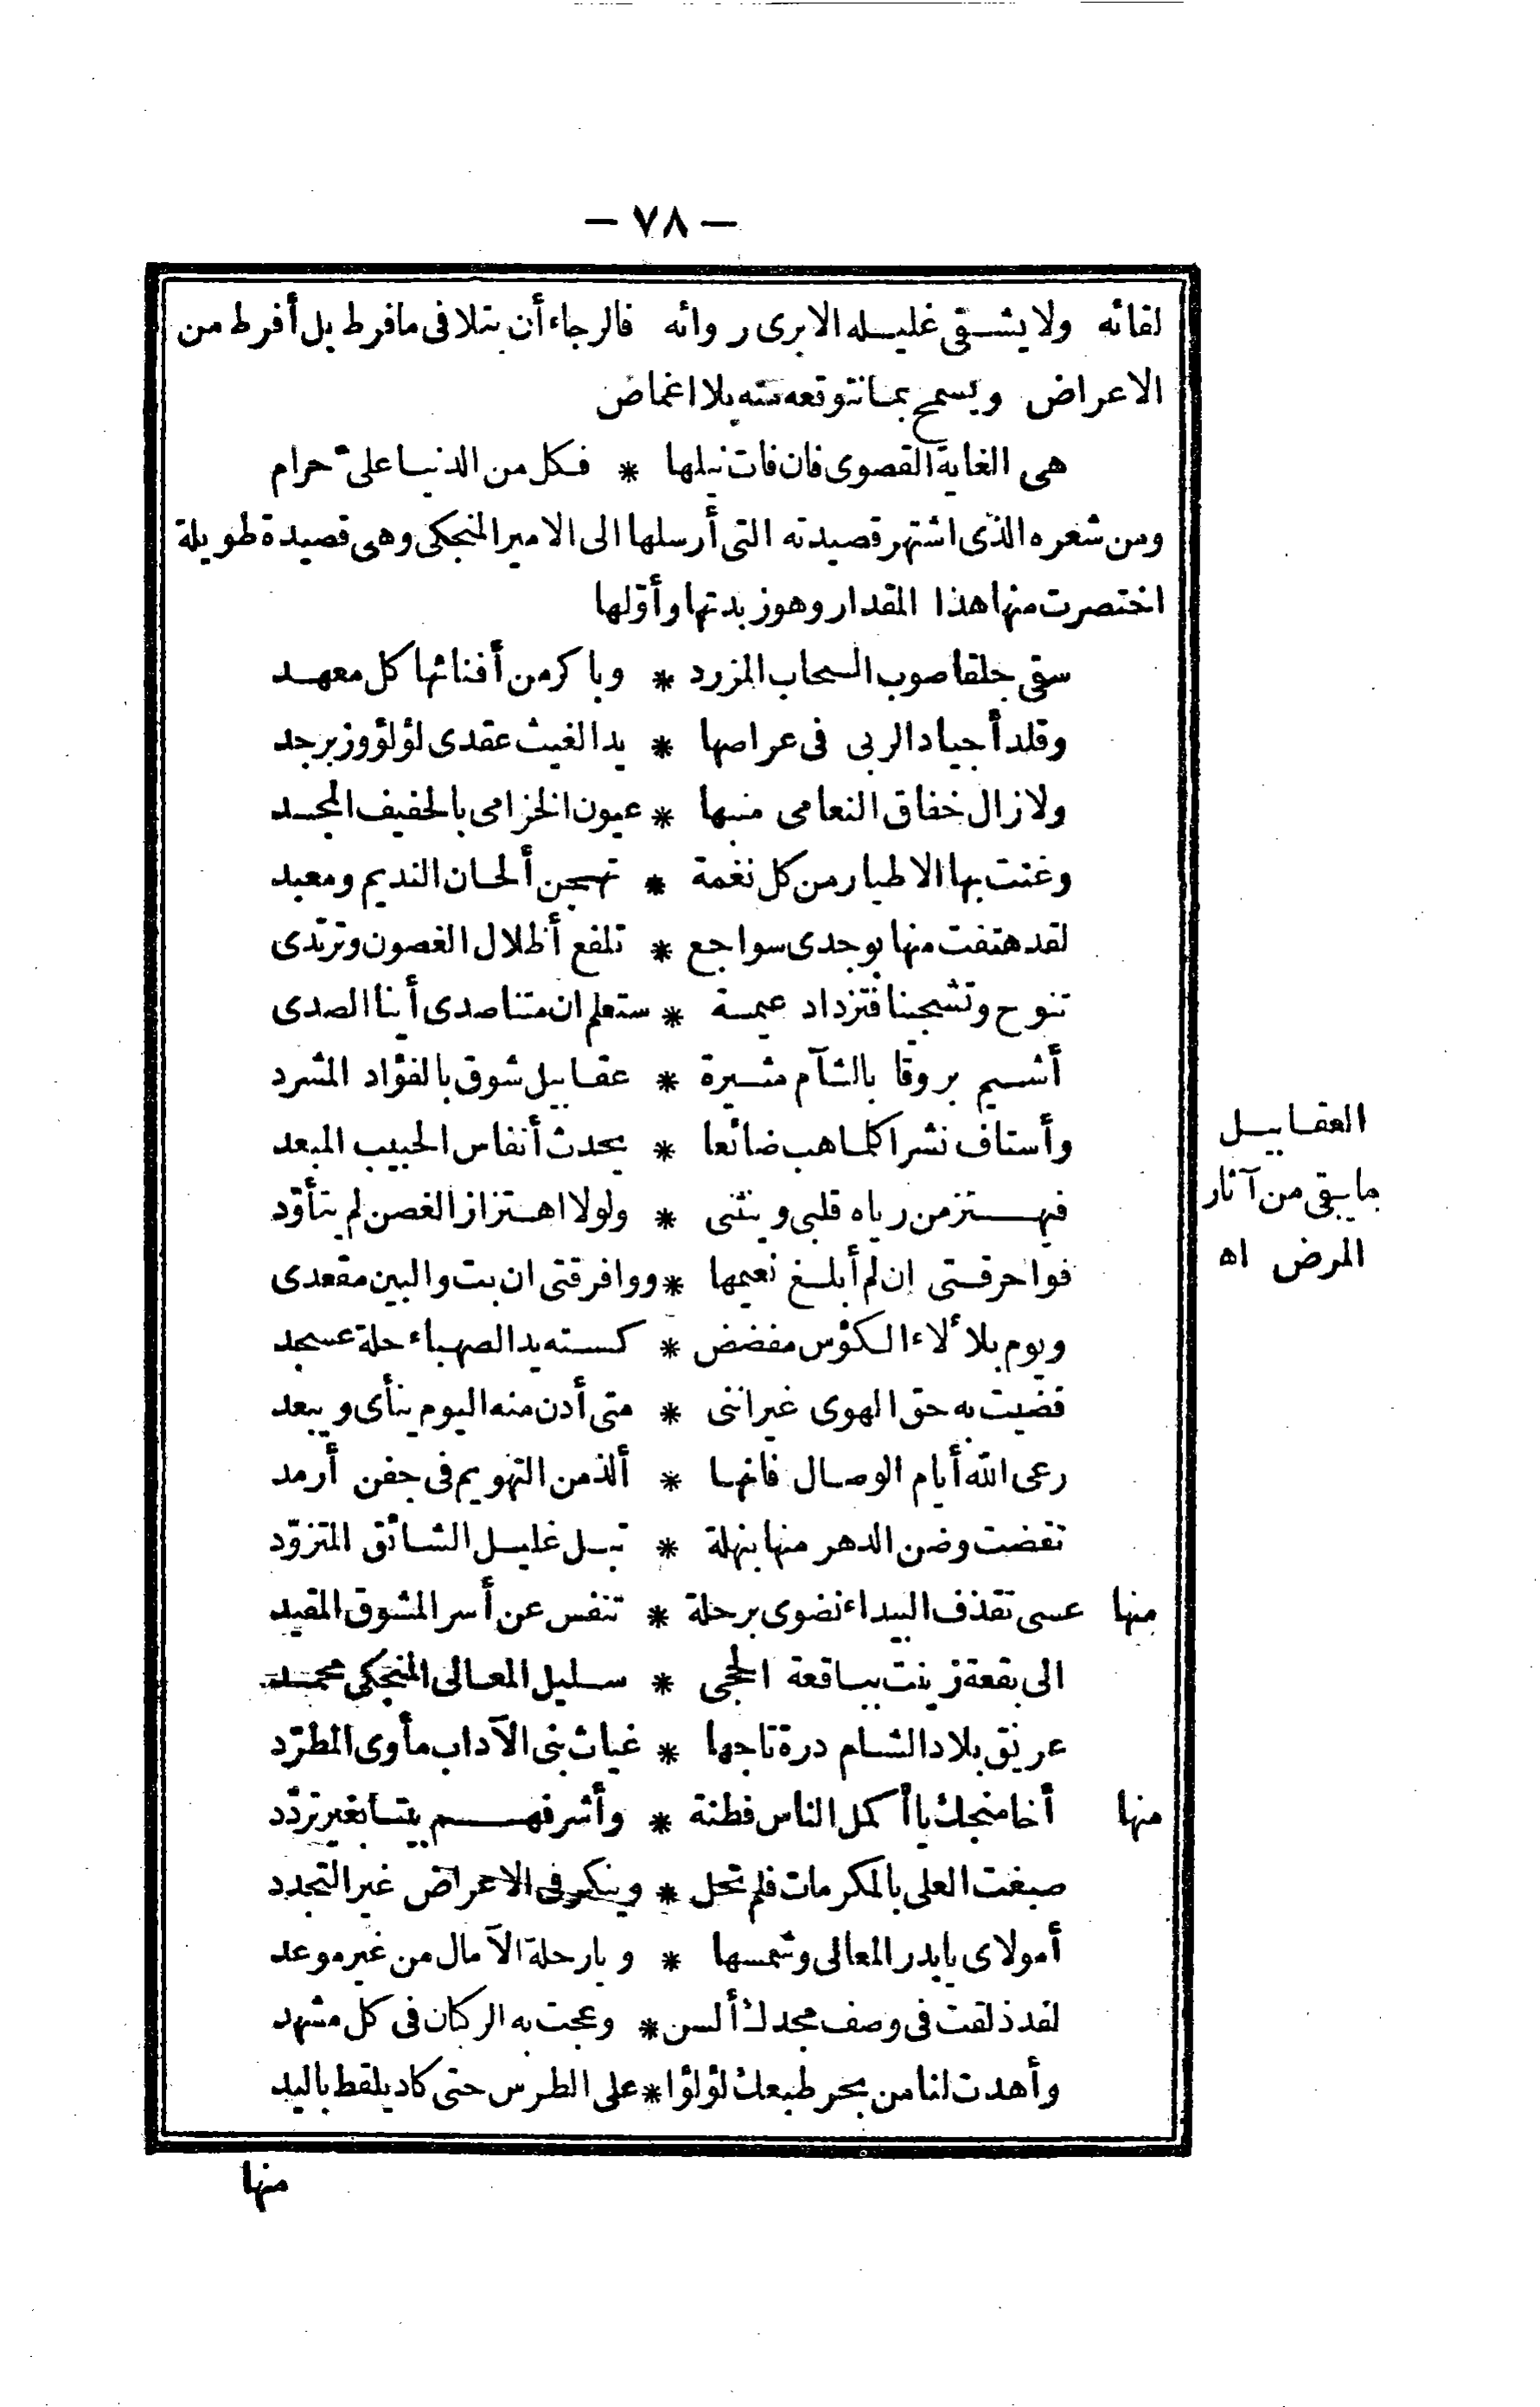 — ٧٨ —
لقائه ولا يشفى غليله الا برى روائه فالرجاء أن يتلافى ما فرط بل أفرط من
الاعراض ويسمح بما نتوقعه منه بلا اغماض
هى الغاية القصوى فان فات نيلها * فكل من الدنيا علىّ حرام
ومن شعره الذى اشتهر قصيدته التى أرسلها الى الامير المنجكى وهى قصيدة طويلة
اختصرت منها هذا المقدار وهو زبدتها وأوّلها
سقى جلقا صوب السحاب المزرد * وباكر من أفنائها كل معهد
وقلد أجياد الربى فى عراصها * يد الغيث عقدى لؤلؤ وزبرجد
ولا زال خفاق النعامى منبها * عيون الخزامى بالحفيف المجسد
وغنت بها الاطيار من كل نغمة * تهجن ألحان النديم ومعبد
لقد هتفت منها بوجدى سواجع * تلفع أظلال الغصون وترتدى
تنوح وتشجينا فتزداد عيمة * ستعلم ان متنا صدى أينا الصدى
أشيم بروقا بالشآم مثيرة * عقابيل شوق بالفؤاد المشرد
وأستاف نشرا كلما هب ضائعا * يحدث أنفاس الحبيب المبعد
العقابيل
ما يبقى من آثار
المرض اه
فيهتز من رياه قلبى وينثنى * ولولا اهتزاز الغصن لم يتأوّد
فواحرقتى ان لم أبلغ نعيمها * ووافرقتى ان بت والبين مقعدى
ويوم بلألاء الكؤس مفضض * كسته يد الصهباء حلة عسجد
قضيت به حق الهوى غير اننى * متى أدن منه اليوم ينأى ويبعد
رعى الله أيام الوصال فانها * ألذ من التهويم فى جفن أرمد
تقضت وضن الدهر منها بنهلة * تبل غليل الشائق المتزوّد
منها عسى تقذف البيداء نضوى برحلة * تنفس عن أسر المشوق المقيد
الى بقعة زينت بباقعة الحجى * سليل المعالى المنجكى محمد
عريق بلاد الشام درة تاجها * غياث بنى الآداب مأوى المطرّد
منها أخا منجك يا أكمل الناس فطنة * وأشرفهم بيتا بغير تردّد
صبغت العلى بالمكرمات فلم تحل * وينكر فى الاعراض غير التجدد
أمولاى يا بدر المعالى وشمسها * ويا رحلة الآمال من غير موعد
لقد ذلقت فى وصف مجدك ألسن * وعجت به الركان فى كل مشهد
وأهدت لنا من بحر طبعك لؤلؤا * على الطرس حتى كاد يلقط باليد
منها